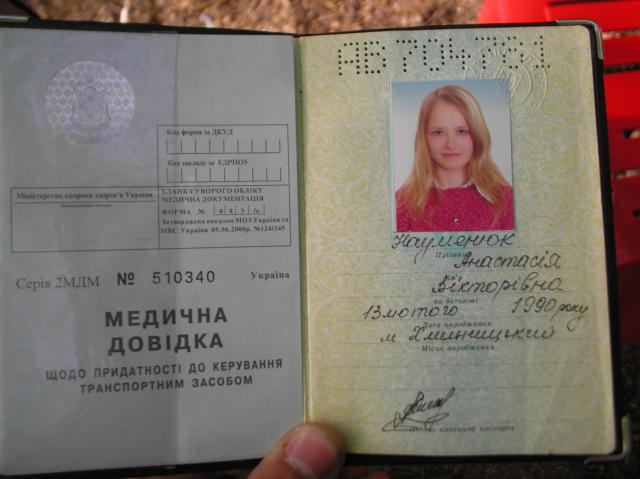 Код форми за ДКУД
Код закладу за ЄДРПОУ
Міністерство охорони здоров'я України
БЛАНК СУВОРОГО ОБЛІКУ
МЕДИЧНА ДОКУМЕНТАЦІЯ
ФОРМА №
Затверджена наказом МОЗ України та
МВС України 05.06.2000р. №124/345
Серія 2МДМ № 510340 Україна
МЕДИЧНА
ДОВІДКА
ЩОДО ПРИДАТНОСТІ ДО КЕРУВАННЯ
ТРАНСПОРТНИМ ЗАСОБОМ
АВ
Науменюк
Прізвище
Анастасія
Ім'я
Вікторівна
по батькові
13 лютого 1990 року
Дата народження
м Хмельницький
Місце народження
Підпис власника паспорта